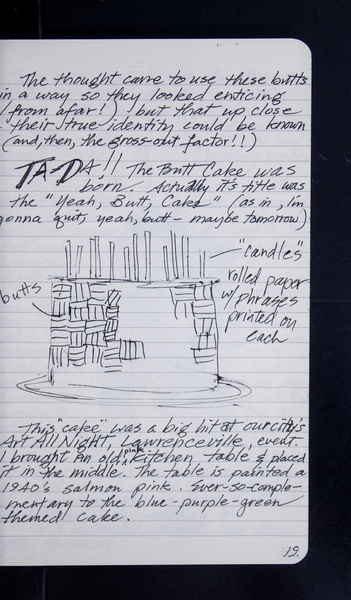 The thought came to use these butts
in a way so they looked enticing
(from afar!), but that up close
their true identity could be known
(and, then, the gross-out factor!!)
TA-DA!! The Butt Cake was
born. Actually it's title was
the "Yeah, Butt, Cake" (as in, I'm
gonna quit, yeah, butt - maybe tomorrow)
"candles"
rolled paper
w/ phrases
printed on
each
butts
This "cake" was a big hit at our city's
Art All Night, Lawrenceville, event.
I brought an old pink kitchen table & placed
it in the middle. The table is painted a
1940's salmon pink. Ever-so-comple-
mentary to the blue-purple-green
themed cake.
19.